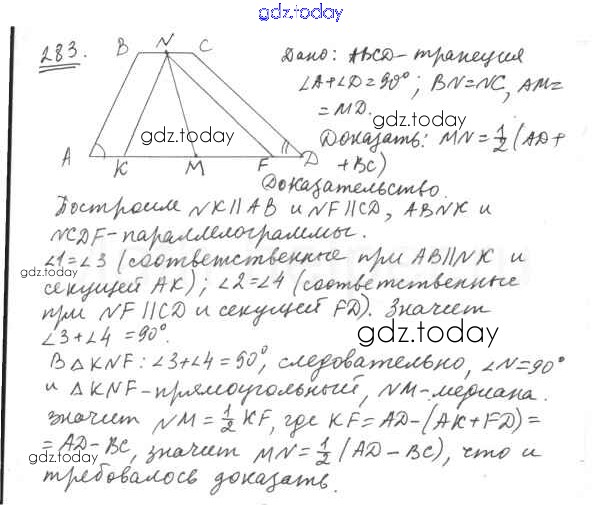 gdz.today
283.
B N C
A K M F D
Дано: ABCD - трапеция
∠A+∠D=90°; BN=NC, AM=
=MD.
Доказать: MN=1/2(AD+
+BC)
gdz.today
Доказательство.
Построим NK||AB и NF||CD, ABNK и
NCDF-параллелограммы.
∠1=∠3 (соответственные при AB||NK и
gdz.today
секущей AK); ∠2=∠4 (соответственные
при NF||CD и секущей FD). Значит
∠3+∠4=90°.
gdz.today
В △KNF: ∠3+∠4=90°, следовательно, ∠N=90°
и △KNF-прямоугольный, NM-медиана.
Значит NM=1/2KF, где KF=AD-(AK+FD)=
=AD-BC, значит MN=1/2(AD-BC), что и
требовалось доказать.
gdz.today